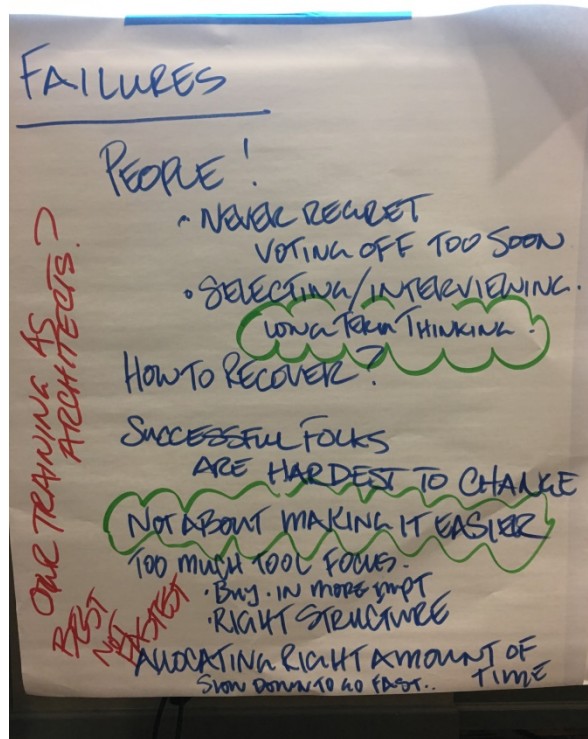 FAILURES
PEOPLE!
• NEVER REGRET
VOTING OFF TOO SOON
• SELECTING/INTERVIEWING.
LONG TERM THINKING.
HOW TO RECOVER?
SUCCESSFUL FOLKS
ARE HARDEST TO CHANGE
NOT ABOUT MAKING IT EASIER
TOO MUCH TOOL FOCUS.
• BUY-IN MORE IMPT
• RIGHT STRUCTURE
ALLOCATING RIGHT AMOUNT OF
TIME
SLOW DOWN TO GO FAST..
OUR TRAINING AS
ARCHITECTS?
BEST
NOT
FASTEST